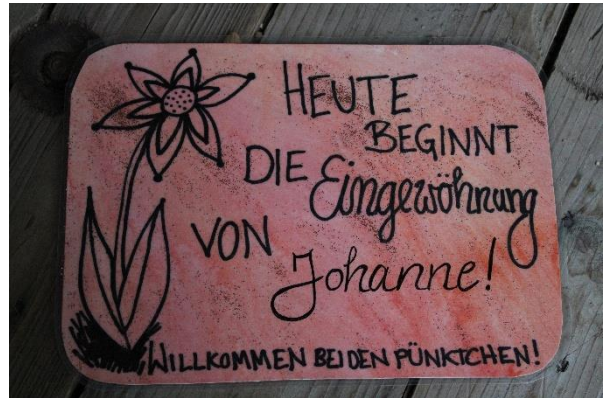 HEUTE
BEGINNT
DIE Eingewöhnung
VON
Johanne!
WILLKOMMEN BEI DEN PÜNKTCHEN!